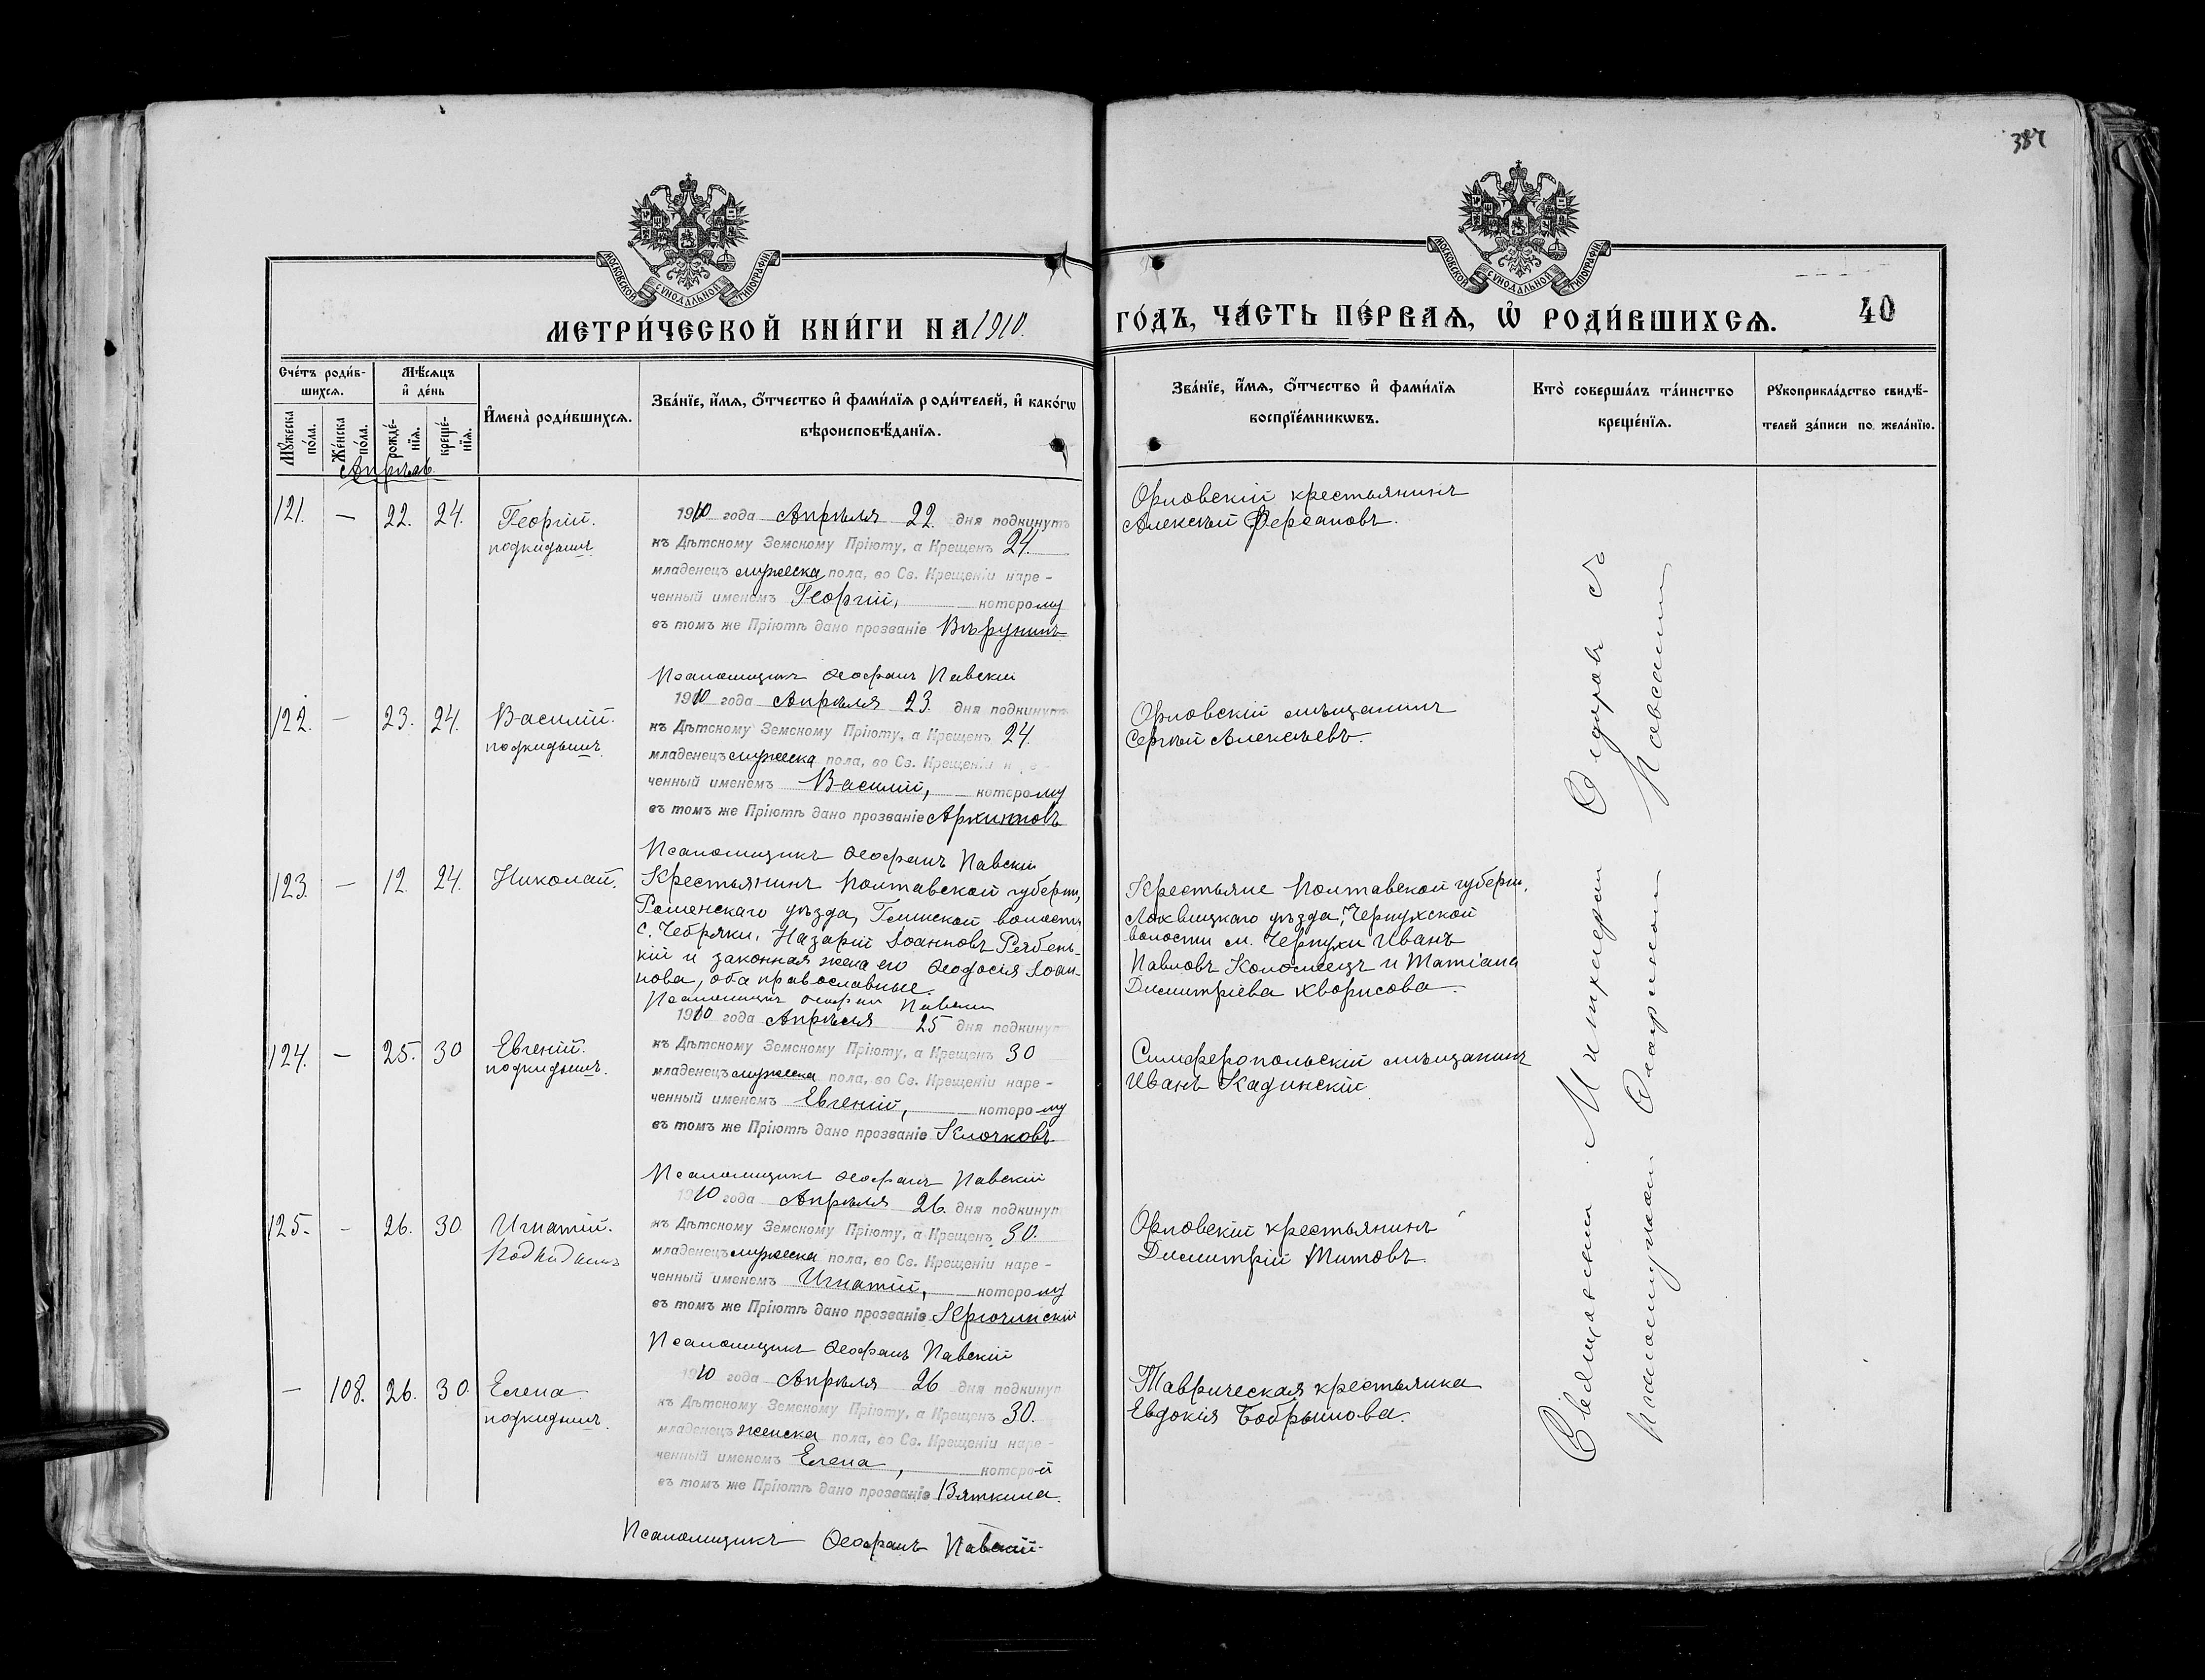 387
МОСКОВСКОЙ СѴНОДАЛЬНОЙ ТИПОГРАФІИ
МОСКОВСКОЙ СѴНОДАЛЬНОЙ ТИПОГРАФІИ
МЕТРИ́ЧЕСКОЙ КНИ́ГИ НА 1910.
ГО́ДЪ, ЧА́СТЬ ПЕ́РВАѦ, Ѡ҆ РОДИ́ВШИХСѦ.
40
Сче́тъ роди́в-
шихсѧ.
Мѣ́сѧцъ
и҆ де́нь
Мꙋ́жеска
по́ла.
Же́нска
по́ла.
рожде́-
нїѧ.
креще́-
нїѧ.
И҆мена̀ роди́вшихсѧ.
Зва́нїе, и҆́мѧ, ѻ҆́тчество и҆ фами́лїѧ роди́телей, и҆ како́гѡ
вѣроисповѣ́данїѧ.
Зва́нїе, и҆́мѧ, ѻ҆́тчество и҆ фами́лїѧ
воспрїе́мникѡвъ.
Кто̀ соверша́лъ та́инство
креще́нїѧ.
Рꙋкоприкла́дство свидѣ́-
телей за́писи по жела́нїю.
Апрѣль
121. — 22. 24. Георгій.
подкидышъ.
1910 года Апрѣля 22 дня подкинутъ
къ Дѣтскому Земскому Пріюту, а Крещенъ 24.
младенецъ мужеска пола, во Св. Крещеніи наре-
ченный именемъ Георгій, которому
въ томъ же Пріютѣ дано прозваніе Вѣрунинъ
Псаломщикъ Ѳеофанъ Павскій
Орловскій крестьянинъ
Алексѣй Фирсановъ.
122. — 23. 24. Василій.
подкидышъ.
1910 года Апрѣля 23 дня подкинутъ
къ Дѣтскому Земскому Пріюту, а Крещенъ 24.
младенецъ мужеска пола, во Св. Крещеніи наре-
ченный именемъ Василій, которому
въ томъ же Пріютѣ дано прозваніе Архиповъ
Псаломщикъ Ѳеофанъ Павскій
Орловскій мѣщанинъ
Сергѣй Алексѣевъ.
123. — 12. 24. Николай.
Крестьянинъ Полтавской губерніи,
Роменскаго уѣзда, волости
с. Чебряки, Назарій Іоанновъ Рябень-
кій и законная жена его Ѳеодосія Іоан-
нова, оба православные.
Псаломщикъ Ѳеофанъ Павскій
Крестьяне Полтавской губерніи,
Лохвицкаго уѣзда, Чернухской
волости м. Чернухи Иванъ
Павловъ Коломіецъ и Татіана
Димитріева Хворисова.
124. — 25. 30 Евгеній.
подкидышъ.
1910 года Апрѣля 25 дня подкинутъ
къ Дѣтскому Земскому Пріюту, а Крещенъ 30
младенецъ мужеска пола, во Св. Крещеніи наре-
ченный именемъ Евгеній, которому
въ томъ же Пріютѣ дано прозваніе Клочковъ
Псаломщикъ Ѳеофанъ Павскій
Симферопольскій мѣщанинъ
Иванъ Кадинскій.
125. — 26. 30 Игнатій.
Подкидышъ
1910 года Апрѣля 26. дня подкинутъ
къ Дѣтскому Земскому Пріюту, а Крещенъ 30.
младенецъ мужеска пола, во Св. Крещеніи наре-
ченный именемъ Игнатій, которому
въ томъ же Пріютѣ дано прозваніе
Псаломщикъ Ѳеофанъ Павскій
Орловскій крестьянинъ
Димитрій Титовъ.
— 108. 26. 30. Елена
подкидышъ.
1910 года Апрѣля 26 дня подкинутъ
къ Дѣтскому Земскому Пріюту, а Крещенъ 30.
младенецъ женска пола, во Св. Крещеніи наре-
ченный именемъ Елена, которой
въ томъ же Пріютѣ дано прозваніе Вяткина.
Псаломщикъ Ѳеофанъ Павскій
Таврическая крестьянка
Евдокія Бобрышова.
Священникъ Митрофанъ съ
псаломщикомъ Ѳеофаномъ Павскимъ